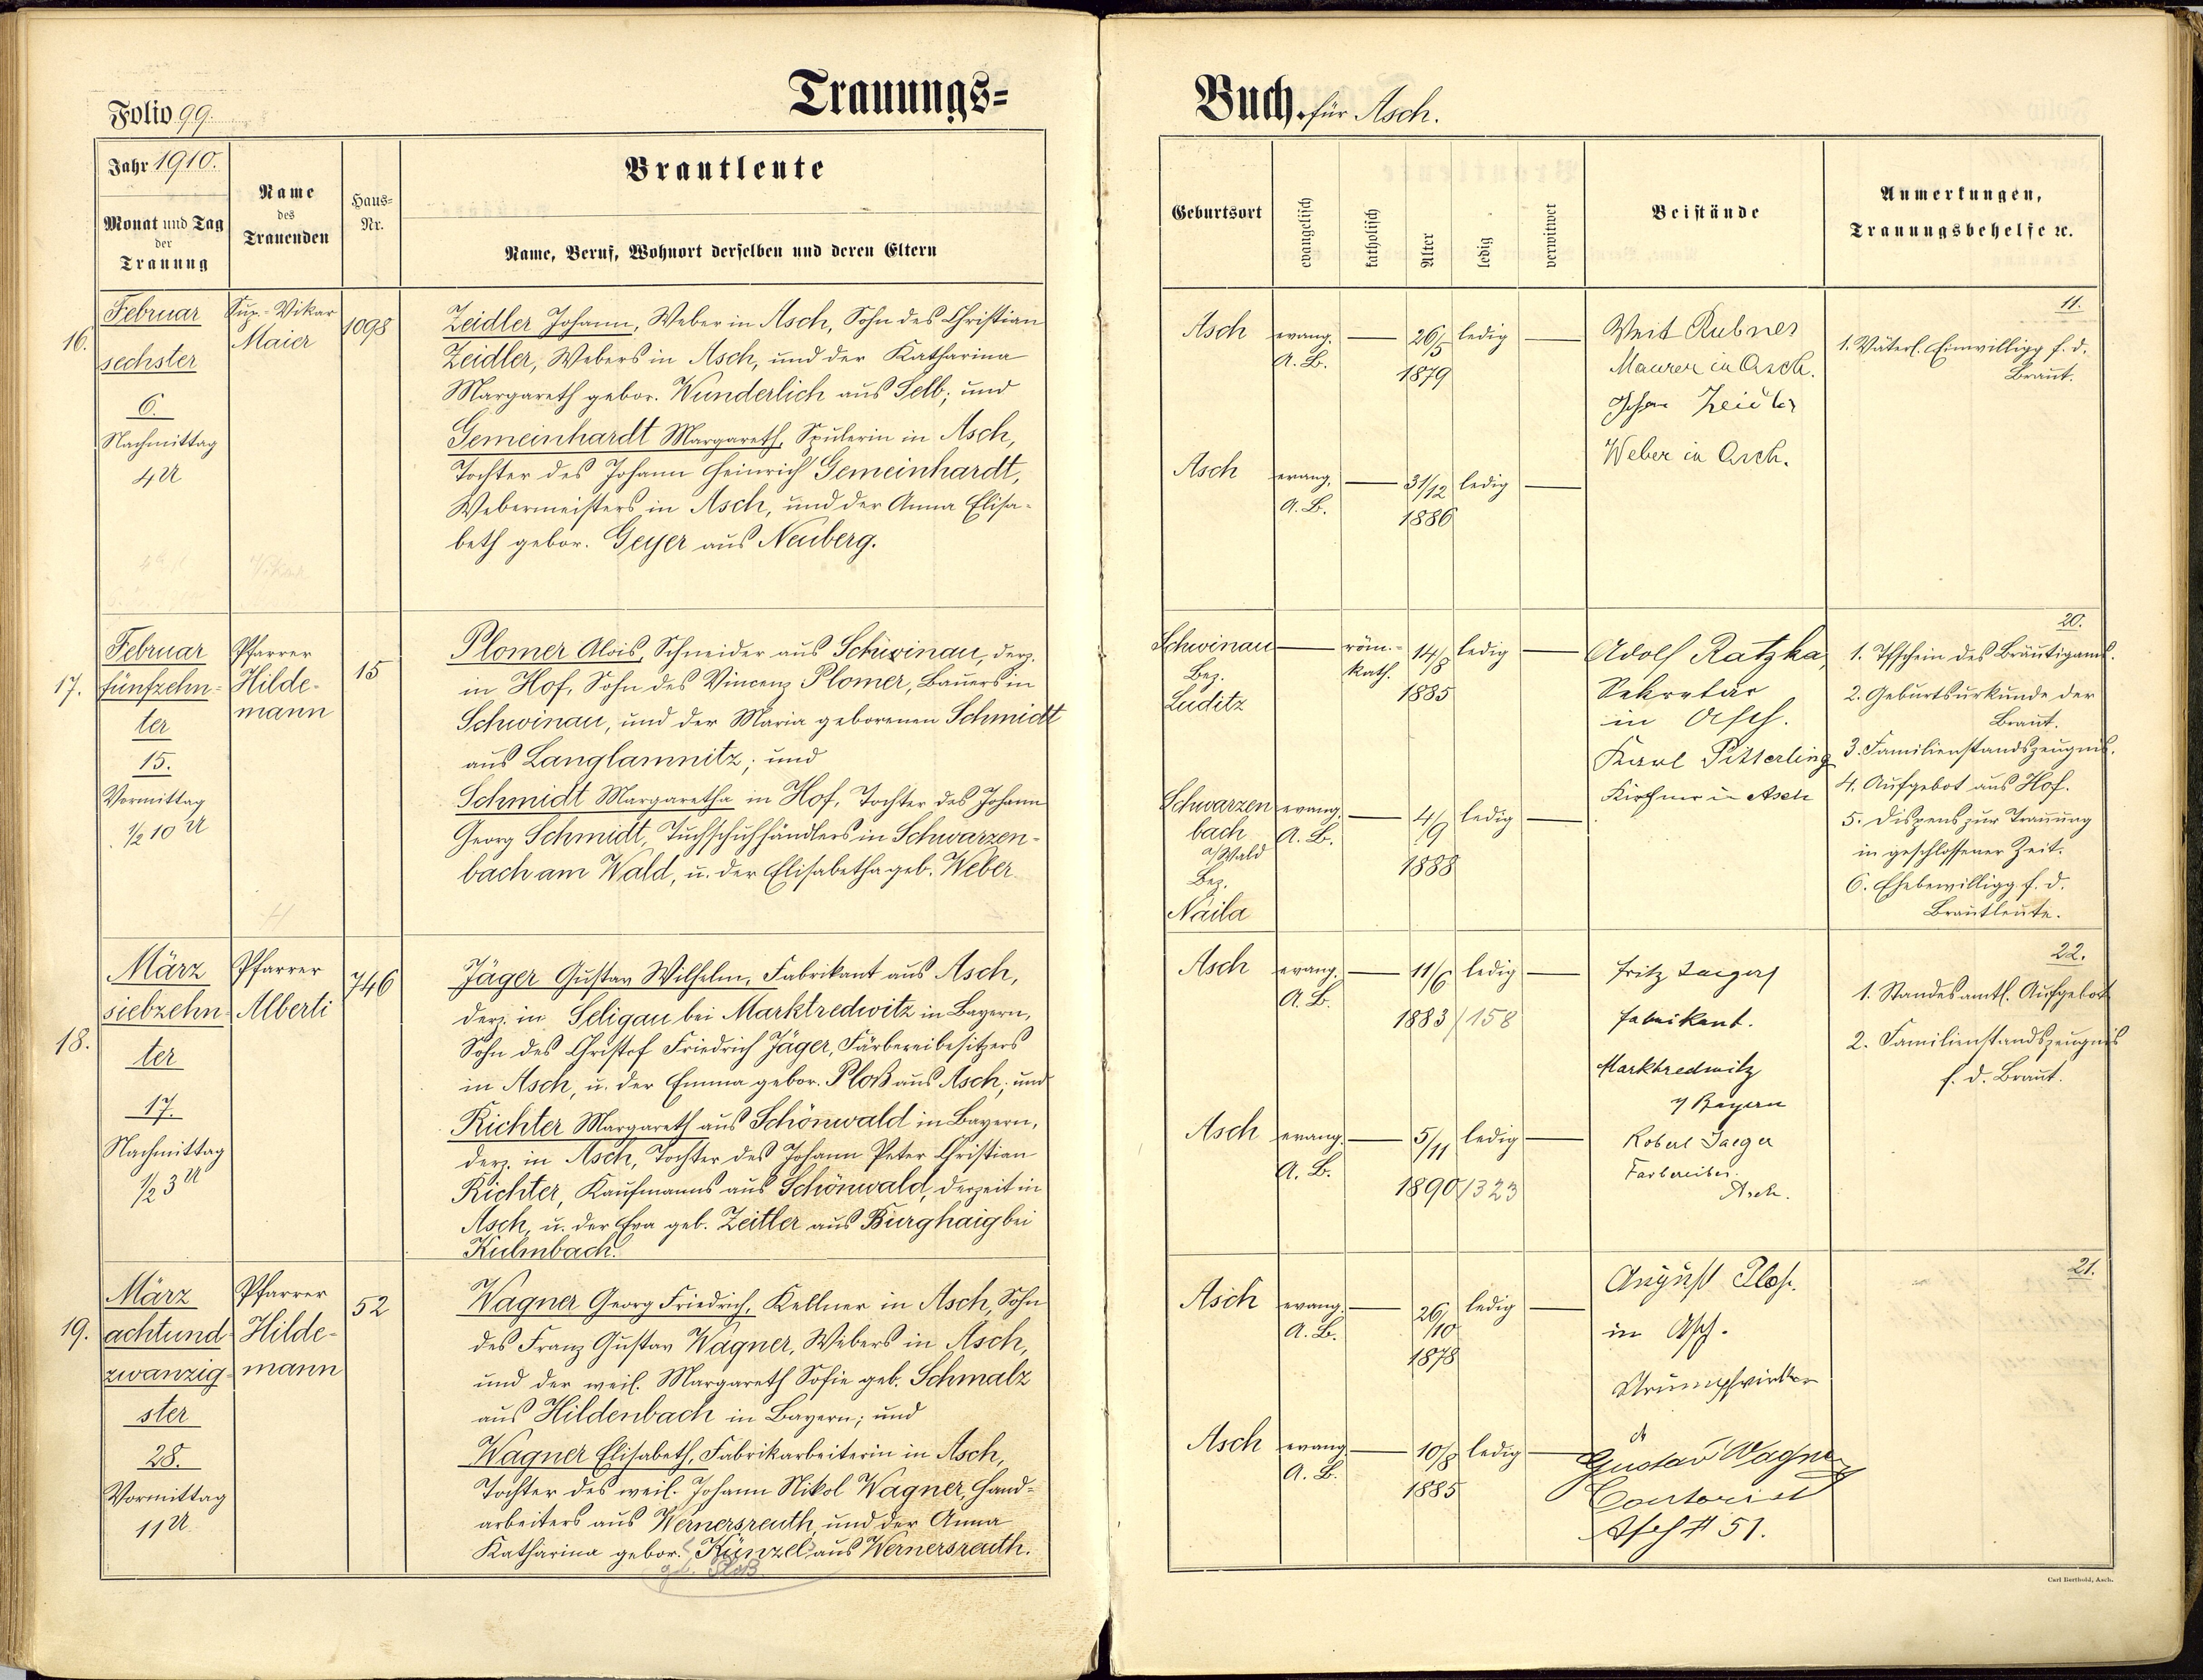 Folio 99.
Trauungs=
Jahr 1910.
Monat und Tag
der
Trauung
Name
des
Trauenden
Haus=
Nr.
Brautleute
Name, Beruf, Wohnort derselben und deren Eltern
16.
Februar
sechster
6.
Nachmittag
4 U
Sup.-Vikar
Maier
1098
Zeidler Johann, Weber in Asch, Sohn des Christian
Zeidler, Webers in Asch, und der Katharina
Margareth gebor. Wunderlich aus Selb; und
Gemeinhardt Margareth, Spulerin in Asch,
Tochter des Johann Heinrich Gemeinhardt,
Webermeisters in Asch, und der Anna Elisa-
beth gebor. Geyer aus Neuberg.
17.
Februar
fünfzehn-
ter
15.
Vormittag
1/2 10 U
Pfarrer
Hilde-
mann
15
Plomer Alois, Schneider aus Schwinau, derz.
in Hof, Sohn des Vincenz Plomer, Bauers in
Schwinau, und der Maria geborenen Schmidt
aus Langlamnitz; und
Schmidt Margaretha in Hof, Tochter des Johann
Georg Schmidt, Tuchschuhhändlers in Schwarzen-
bach am Wald, u. der Elisabetha geb. Weber.
18.
März
siebzehn-
ter
17.
Nachmittag
1/2 3 U
Pfarrer
Alberti
746
Jäger Gustav Wilhelm, Fabrikant aus Asch,
derz. in Seligau bei Marktredwitz in Bayern,
Sohn des Christof Friedrich Jäger, Färbereibesitzers
in Asch, u. der Emma gebor. Ploß aus Asch; und
Richter Margareth aus Schönwald in Bayern,
derz. in Asch, Tochter des Johann Peter Christian
Richter, Kaufmanns aus Schönwald, derzeit in
Asch, u. der Eva geb. Zeitler aus Burghaig bei
Kulmbach.
19.
März
achtund-
zwanzig-
ster
28.
Vormittag
11 U.
Pfarrer
Hilde-
mann
52
Wagner Georg Friedrich, Kellner in Asch, Sohn
des Franz Gustav Wagner, Webers in Asch,
und der weil. Margareth Sofie geb. Schmalz
aus Hildenbach in Bayern; und
Wagner Elisabeth, Fabrikarbeiterin in Asch,
Tochter des weil. Johann Nikol Wagner, Hand-
arbeiters aus Wernersreuth, und der Anna
Katharina gebor. Künzel aus Wernersreuth.
geb. Ploß
Buch. für Asch.
Geburtsort
evangelisch
katholisch
Alter
ledig
verwitwet
Beistände
Anmerkungen,
Trauungsbehelfe ꝛc.
Asch
evang.
A. B.
26/5
1879
ledig
Asch
evang.
A. B.
31/12
1886
ledig
Veit Rubner
Maurer in Asch.
Johann Zeidler
Weber in Asch.
11.
1. Väterl. Einwilligg f. d.
Braut.
Schwinau
Bez.
Luditz
röm.-
kath.
14/8
1885
ledig
Schwarzen
bach
a/Wald
Bez.
Naila
evang.
A. B.
4/9
1888
ledig
Adolf Ratzka,
Sekretär
in Asch.
Karl Pitterling
Kirchner in Asch
20.
1. Tfschein des Bräutigams.
2. Geburtsurkunde der
Braut.
3. Familienstandszeugnis.
4. Aufgebot aus Hof.
5. Dispens zur Trauung
in geschlossener Zeit.
6. Ehebewilligg. f. d.
Brautleute.
Asch
evang.
A. B.
11/6
1883/158
ledig
Asch
evang.
A. B.
5/11
1890/323
ledig
Fritz Jaeger
Fabrikant.
Marktredwitz
Bayern
Robert Jaeger
Färbereibes.
Asch.
22.
1. Standesamtl. Aufgebot
2. Familienstandszeugnis
f. d. Braut.
Asch
evang.
A. B.
26/10
1878
ledig
Asch
evang.
A. B.
10/8
1885
ledig
August Ploß.
in Asch.
Strumpfwirker
Gustav Wagner
Contorist
Asch # 51.
21.
Carl Berthold, Asch.